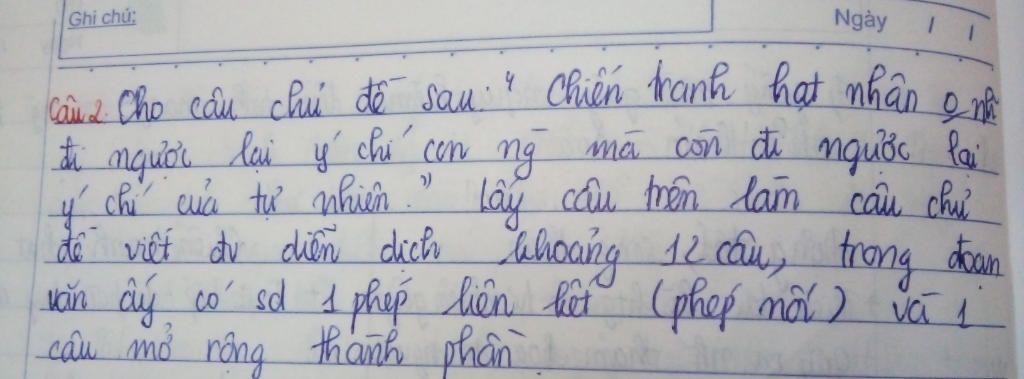 Ghi chú:
Ngày / /
Câu 2. Cho câu chủ đề sau: " Chiến tranh hạt nhân o nh
đi ngược lại ý chí con ng mà còn đi ngược lại
ý chí của tự nhiên." Lấy câu trên làm câu chủ
đề viết đv diễn dịch khoảng 12 câu, trong đoạn
văn ấy có sd 1 phép liên kết (phép nối) và 1
câu mở rộng thành phần.